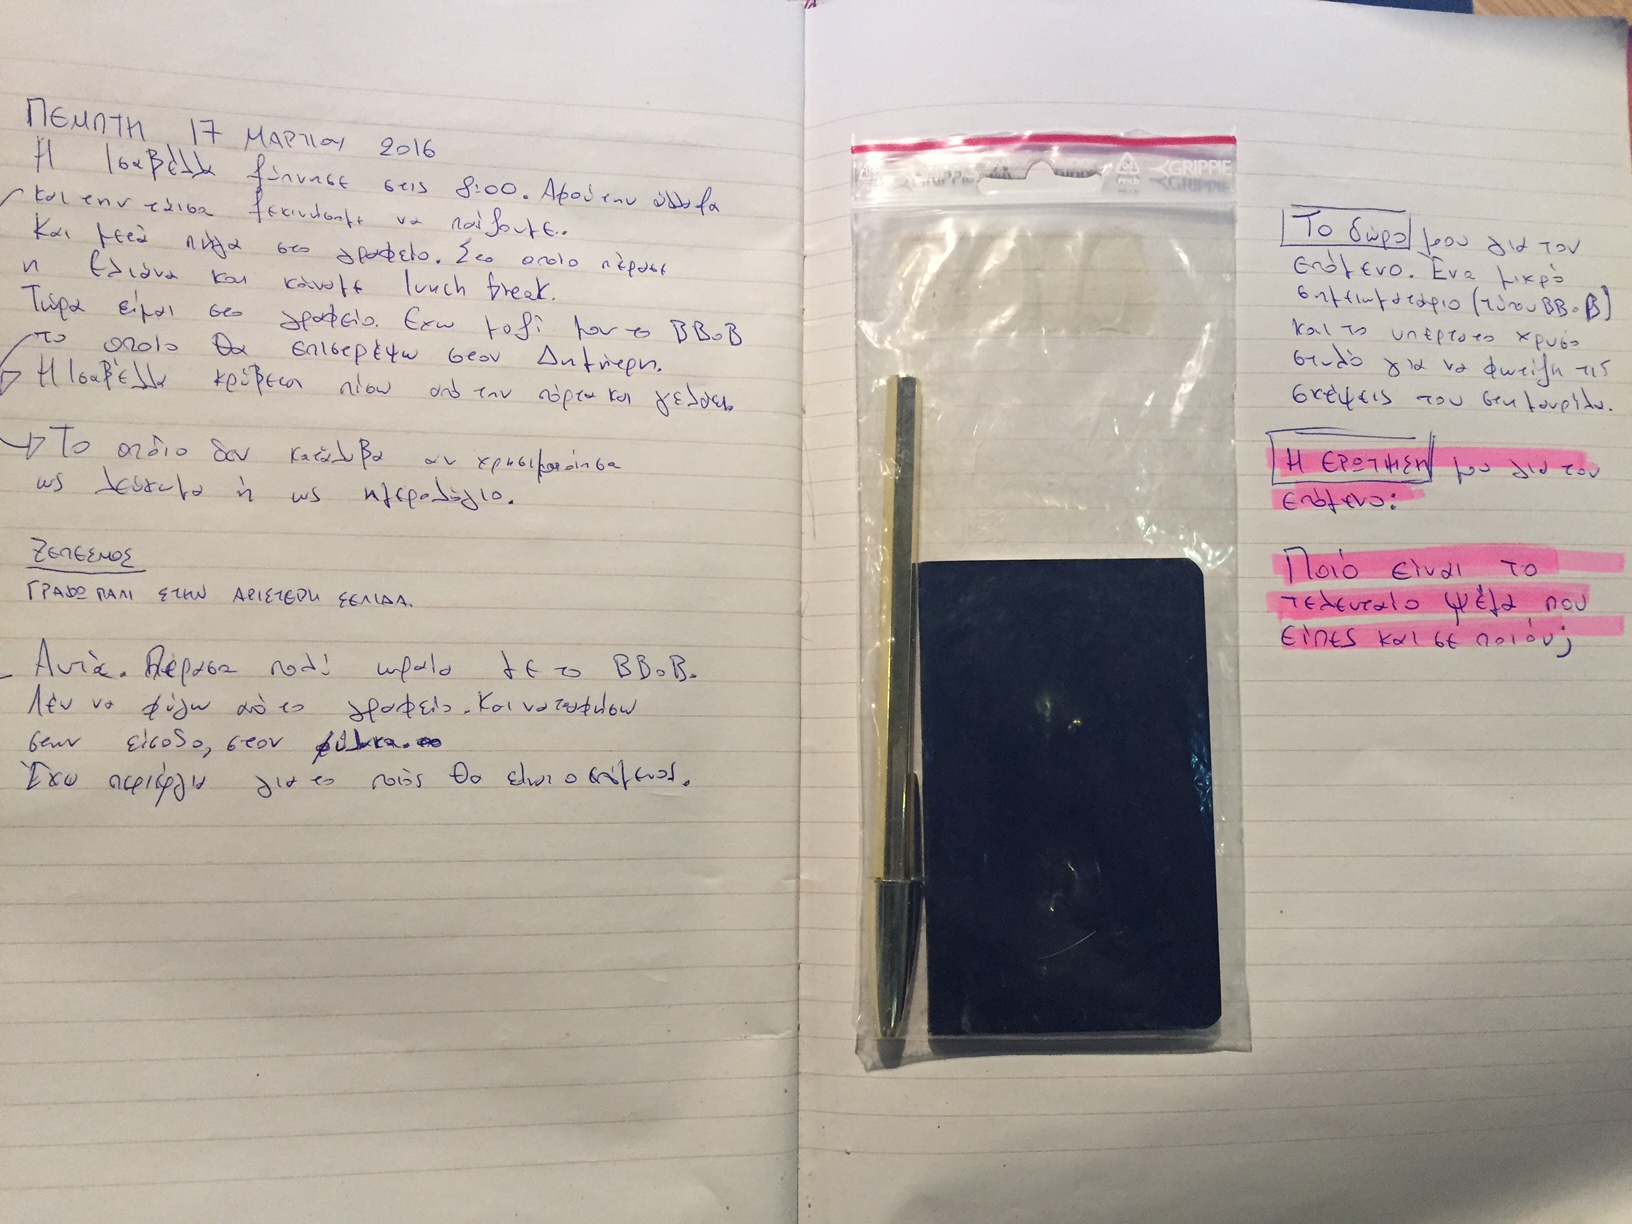 ΠΕΜΠΤΗ 17 ΜΑΡΤΙΟΥ 2016
Η Ισαβέλλα ξύπνησε στις 8:00. Αφού την άλλαξα
και την τάισα ξεκινήσαμε να παίζουμε.
Και μετά πήγα στο γραφείο. Στο οποίο πέρασε
η Ελιάνα και κάναμε lunch break.
Τώρα είμαι στο γραφείο. Εχω μαζί μου το BBoB
το οποίο θα επιστρέψω στον Δημήτρη.
Η Ισαβέλλα κρύβεται πίσω από την πόρτα και γελάει.
Το οποίο δεν κατάλαβα αν χρησιμοποίησα
ως λεύκωμα ή ως ημερολόγιο.
ΞΕΠΕΣΜΟΣ
ΓΡΑΦΩ ΠΑΛΙ ΣΤΗΝ ΑΡΙΣΤΕΡΗ ΣΕΛΙΔΑ.
Αυτά. Πέρασα πολύ ωραία με το BBoB.
Λέω να φύγω από το γραφείο. Και να το αφήσω
στην είσοδο, στον φύλακα.
Έχω περιέργεια για το ποιός θα είναι ο επόμενος.
GRIPPIE
GRIPPIE
Το δώρο μου για τον
επόμενο. Ένα μικρό
σημειωματάριο (τύπου BBoB)
και το υπέρτατο χρυσό
στυλό για να φωτίζη τις
σκέψεις του
Η ΕΡΩΤΗΣΗ μου για τον
επόμενο:
Ποιό είναι το
τελευταίο ψέμα που
είπες και σε ποιόν;